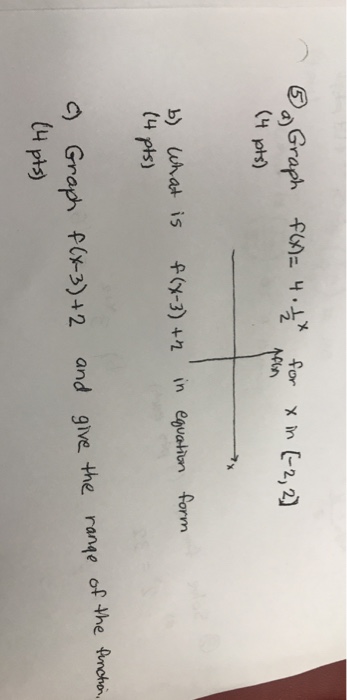 ⑤ a) Graph f(x) = 4 · 1/2^x for x in [-2, 2]
(4 pts)
f(x)
x
b) What is f(x-3) + 2 in equation form
(4 pts)
c) Graph f(x-3) + 2 and give the range of the function.
(4 pts)